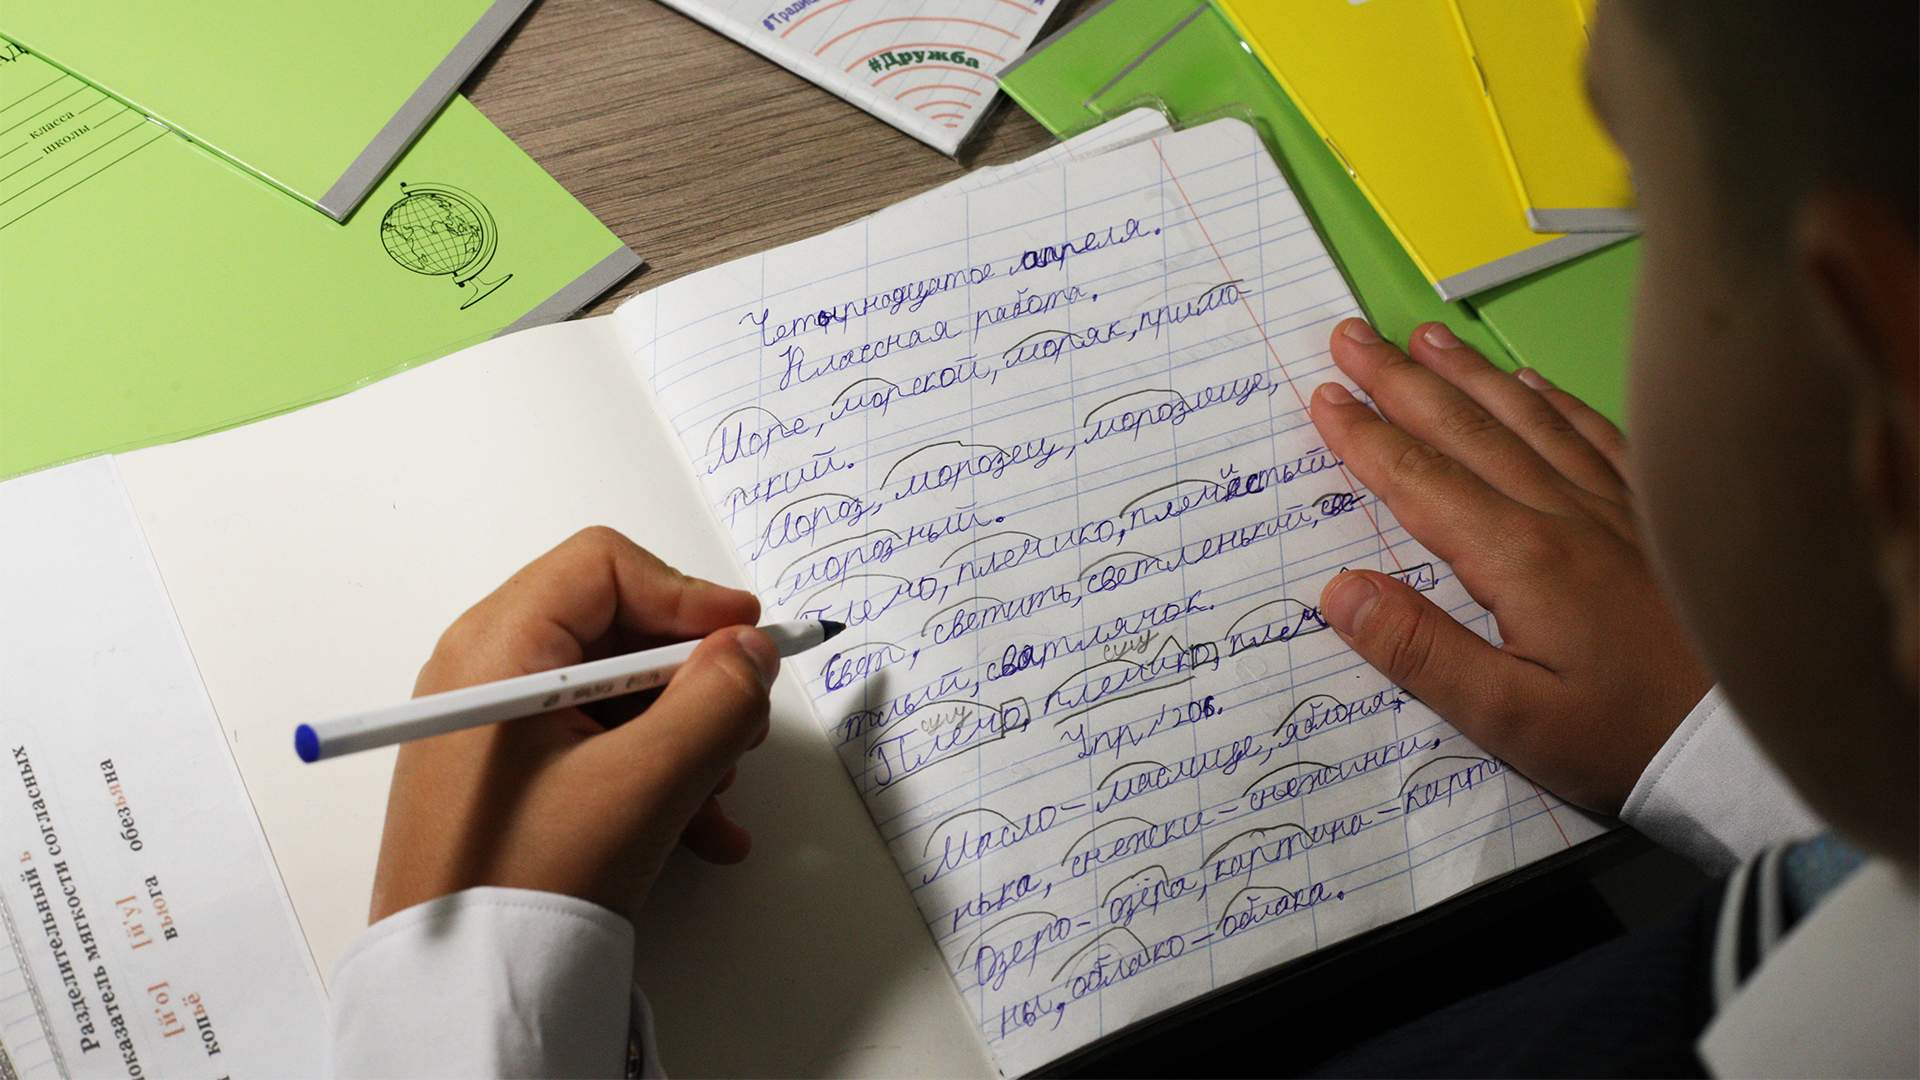 класса
школы
#Тради
#Дружба
Четырнадцатое апреля.
Классная работа.
Море, морской, моряк, примо-
рский.
Мороз, морозец, морозище,
морозный.
Племо, племико, племйастый.
Свет, светить, светленький, све
тлый, сватлячок.
сущ сущ
Племо, племико, плем
Упр. 206.
Масло – маслице, яблоня, –
нька, снежки – снежинки,
Озеро – озёра, картина – карти
ны, облако – облака.
Разделительный ь
показатель мягкости согласных
[й'о] [й'у]
копьё вьюга обезьяна